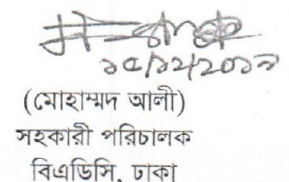 ১৫/১২/২০১৯
(মোহাম্মদ আলী)
সহকারী পরিচালক
বিএডিসি, ঢাকা